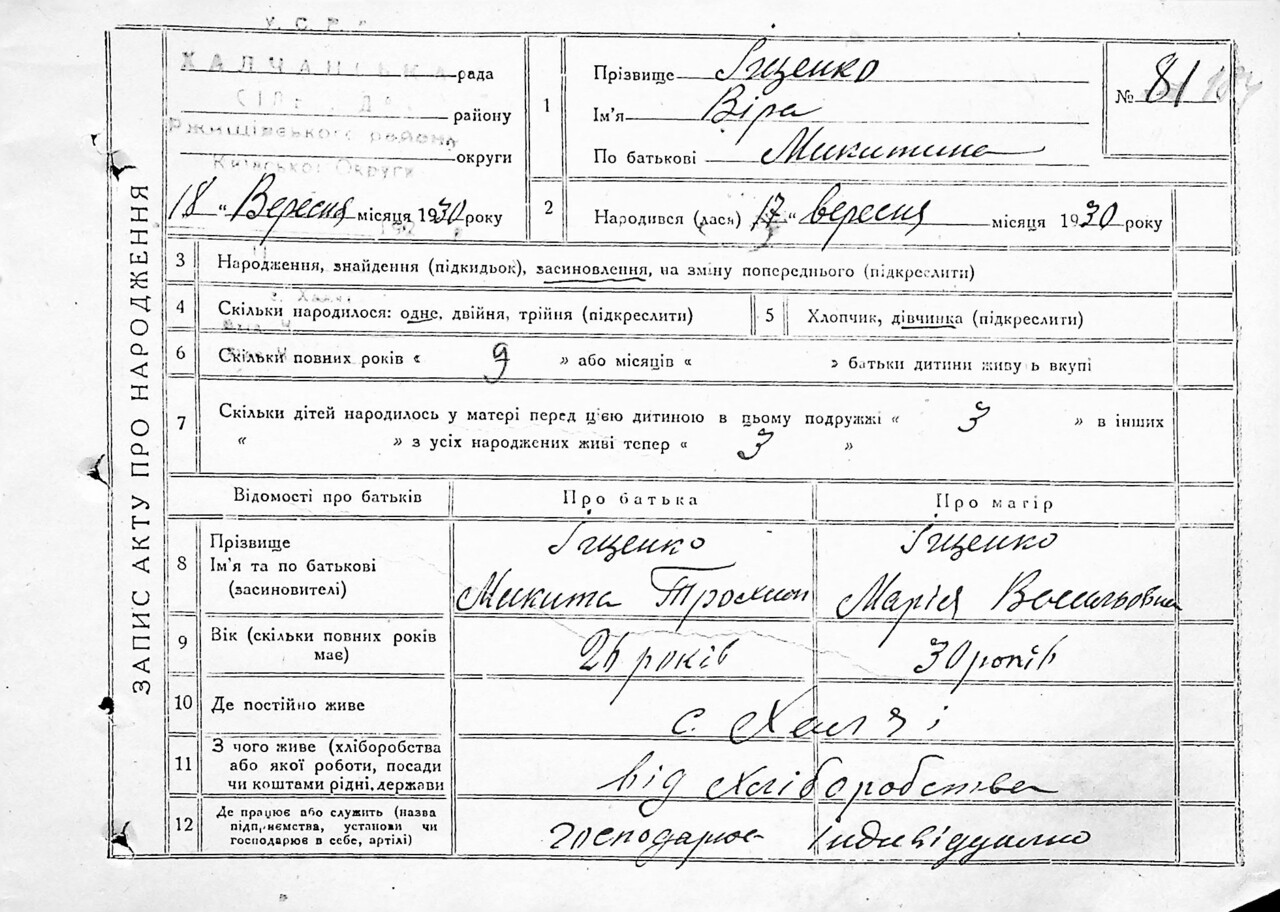 У.С.Р.Р.
ХАЛЧАНСЬКА рада
СІЛ району
Ржищівського району
округи
Київської Округи
18 " Вересня місяця 1930 року
ЗАПИС АКТУ ПРО НАРОДЖЕННЯ
1 Прізвище Іщенко
Ім'я Віра
По батькові Микитина
№ 81 184
2 Народився (лася) 17 " вересня місяця 1930 року
3 Народження, знайдення (підкидьок), засиновлення, на зміну попереднього (підкреслити)
4 Скільки народилося: одне, двійня, трійня (підкреслити)
5 Хлопчик, дівчинка (підкреслити)
6 Скільки повних років « 9 » або місяців « » батьки дитини живу ь вкупі
7 Скільки дітей народилось у матері перед ц'єю дитиною в цьому подружжі « 3 » в інших
« » з усіх народжених живі тепер « 3 »
Відомості про батьків Про батька Про матір
8 Прізвище Іщенко Іщенко
Ім'я та по батькові
(засиновителі) Микита Трохим Марія Васильовна
9 Вік (скільки повних років
має) 26 років 30 років
10 Де постійно живе с. Халчі
11 З чого живе (хліборобства
або якої роботи, посади
чи коштами рідні, держави від хліборобства
12 Де працює або служить (назва
підприємства, установи чи
господарює в себе, артілі) господарює індивідуално